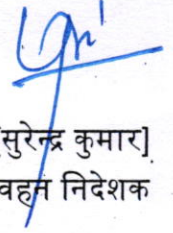 सुरेन्द्र कुमार]
वहन निदेशक